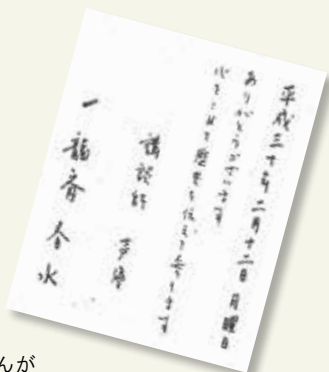 平成三十年二月十二日 月曜日
ありがとうございます
心をこめて歴史を伝えて参ります
講談師 声優
一龍斎春水
んが